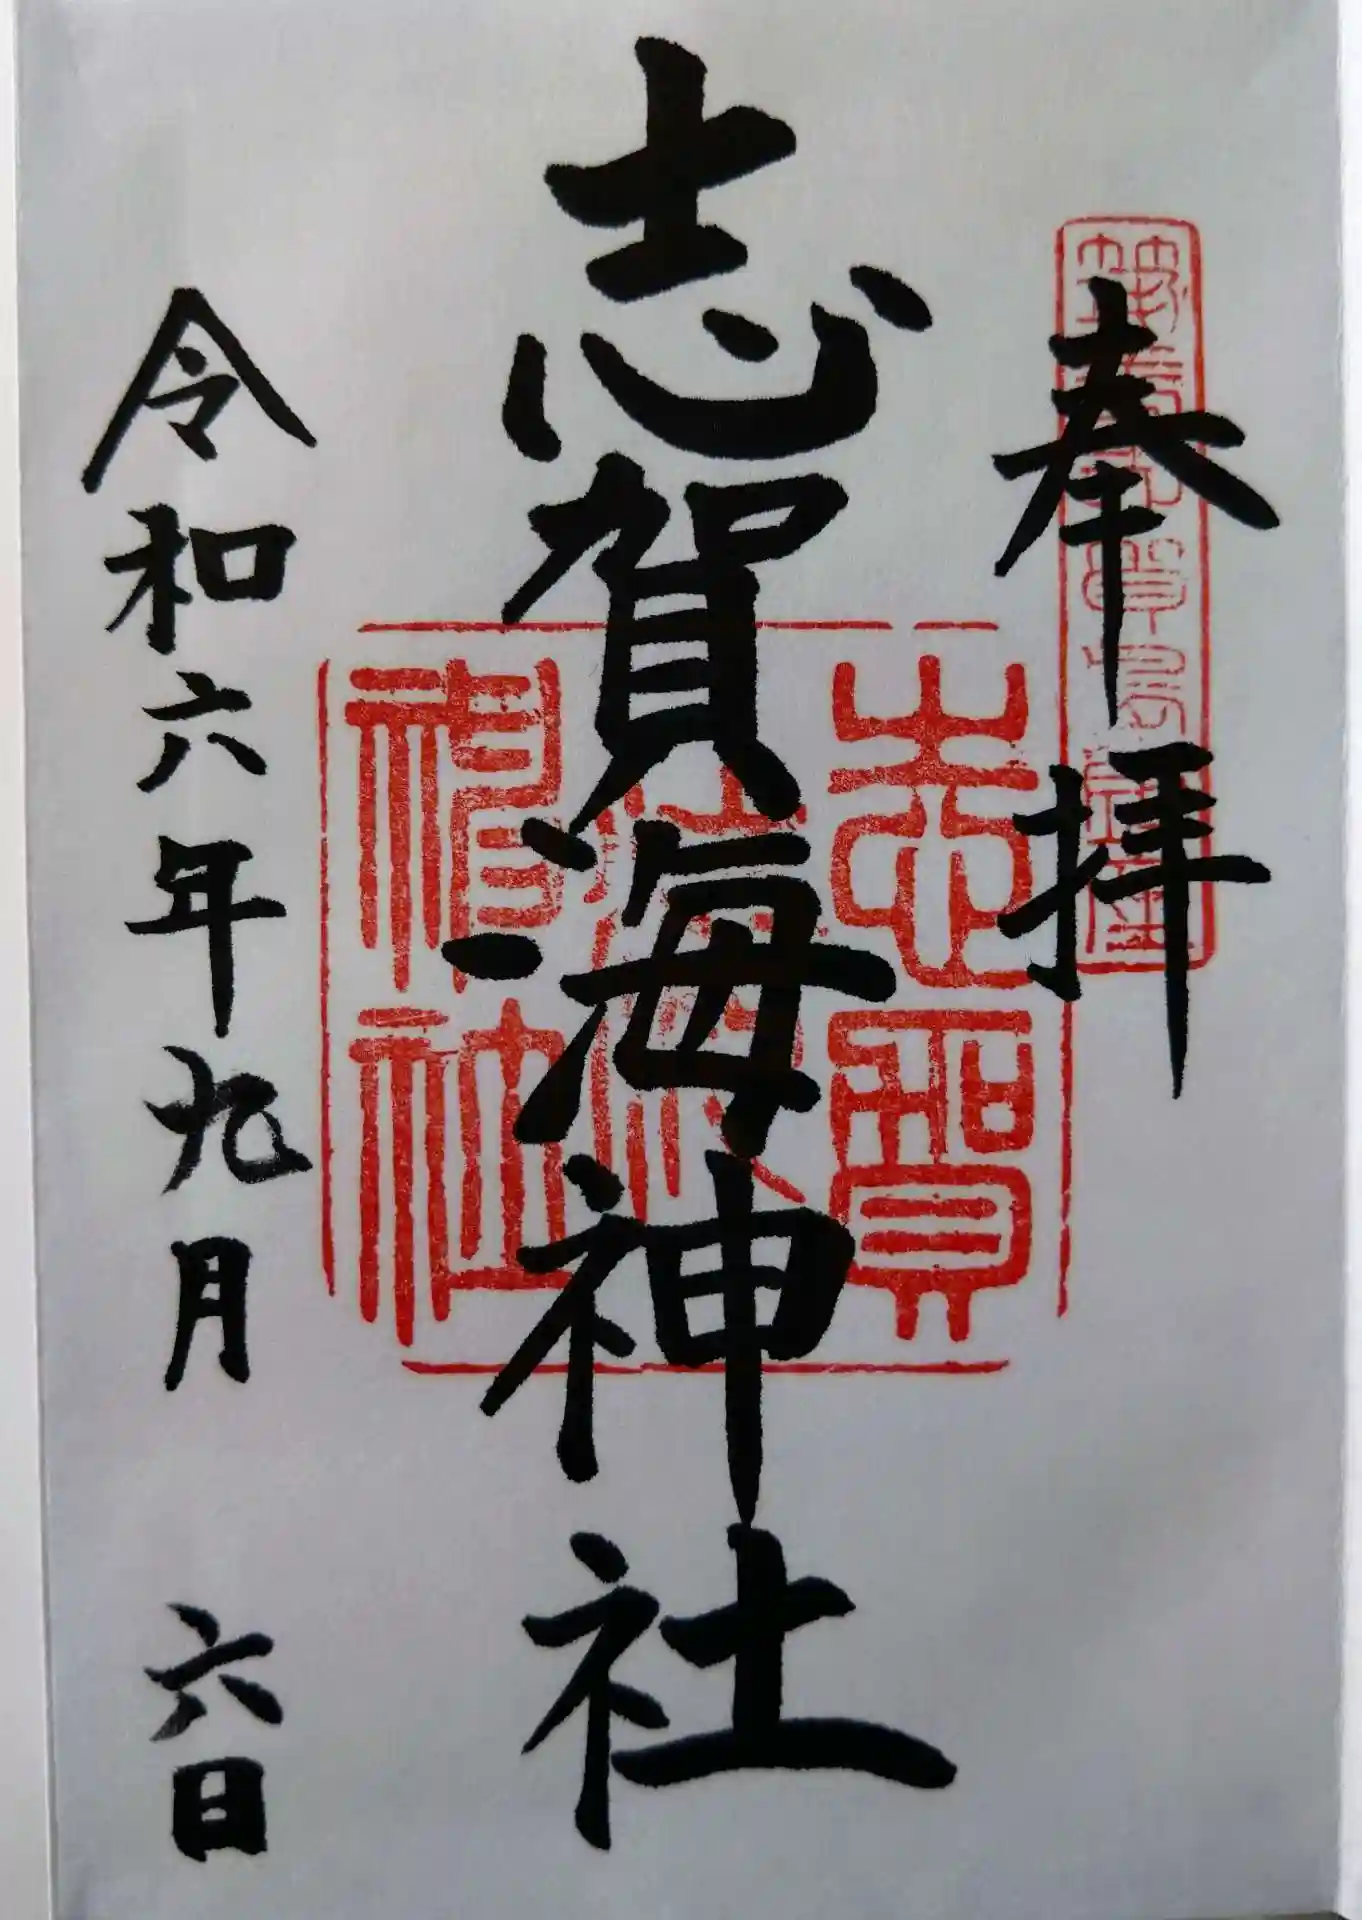 奉拝
志賀海神社
令和六年九月六日
志賀
海
神社